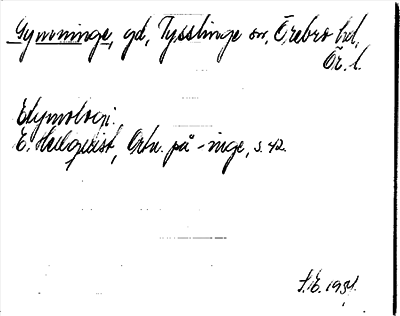 Gymninge, gd, Tysslinge sn, Örebro hd,
Ör. l.
Etymologi:
E. Hellquist, Ortn. på -inge, s. 42.
S.E. 1951.